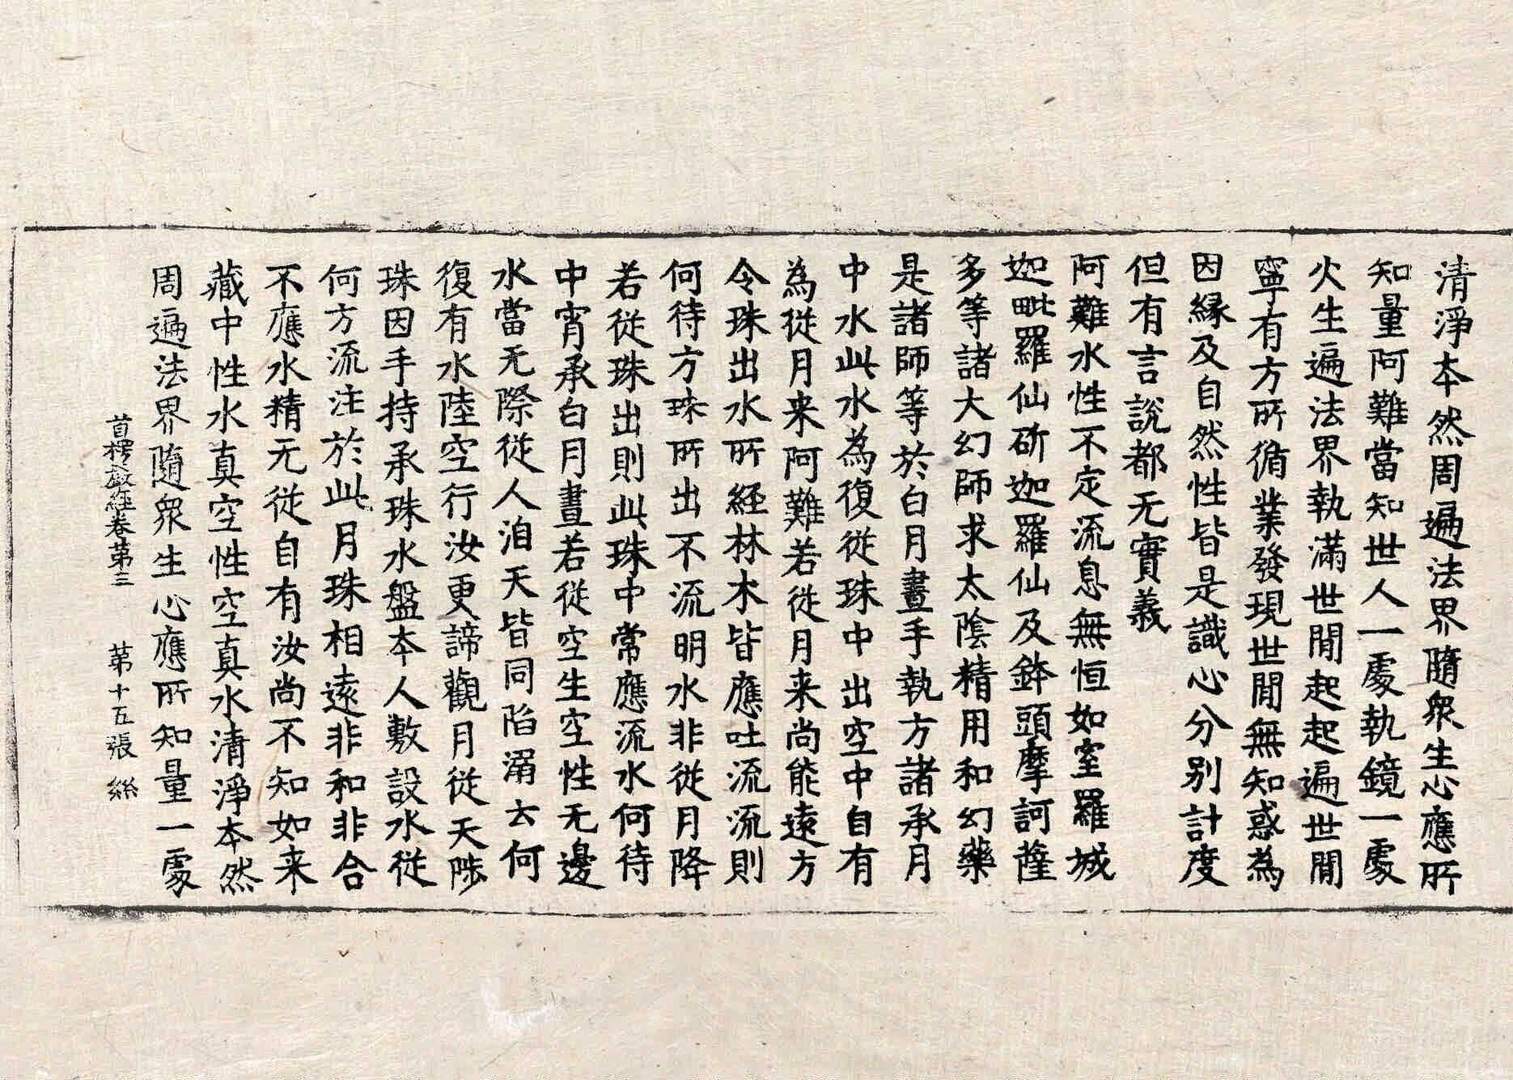 清淨本然周遍法界隨衆生心應所
知量阿難當知世人一處執鏡一處
火生遍法界執滿世閒起起遍世閒
寧有方所循業發現世閒無知惑為
因緣及自然性皆是識心分別計度
但有言說都无實義
阿難水性不定流息無恒如室羅城
迦毗羅仙斫迦羅仙及鉢頭摩訶薩
多等諸大幻師求太陰精用和幻藥
是諸師等於白月晝手執方諸承月
中水此水為復從珠中出空中自有
為從月来阿難若從月来尚能遠方
令珠出水所經林木皆應吐流流則
何待方珠所出不流明水非從月降
若從珠出則此珠中常應流水何待
中宵承白月晝若從空生空性无邊
水當无際從人洎天皆同陷溺云何
復有水陸空行汝更諦觀月從天陟
珠因手持承珠水盤本人敷設水從
何方流注於此月珠相遠非和非合
不應水精无從自有汝尚不知如来
藏中性水真空性空真水清淨本然
周遍法界隨衆生心應所知量一處
首楞嚴經卷第三 第十五張 絲